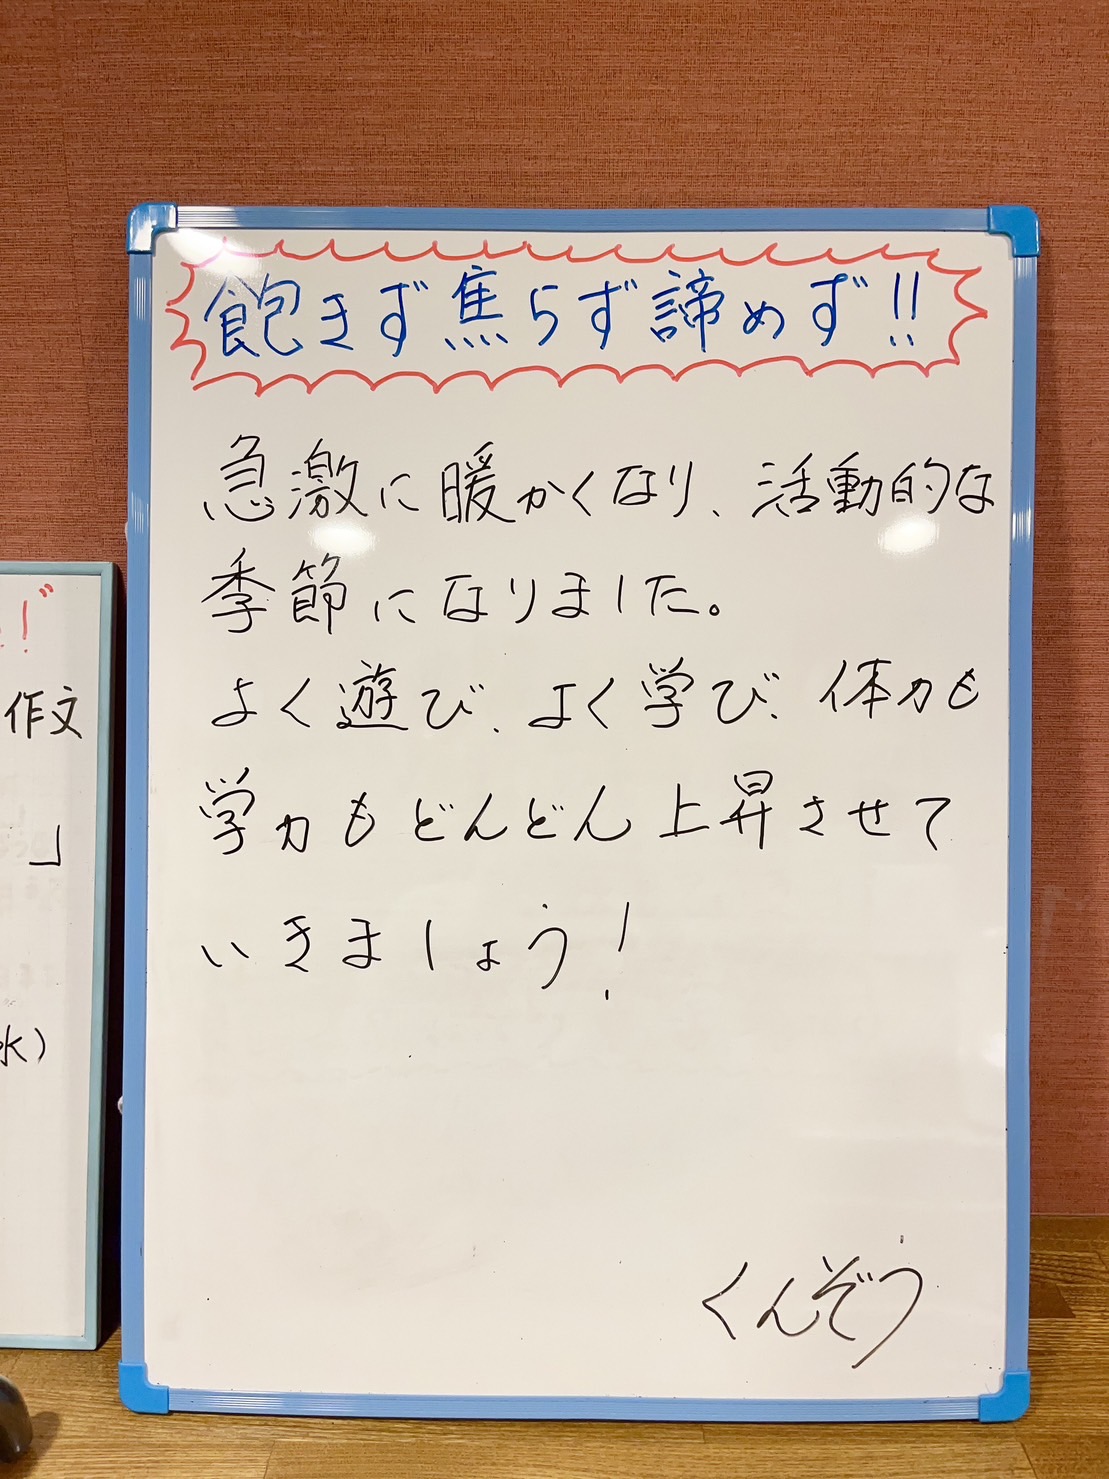 飽きず焦らず諦めず!!
急激に暖かくなり、活動的な
季節になりました。
よく遊び、よく学び、体力も
学力もどんどん上昇させて
いきましょう!
くんぞう
!!
作文
」
水)